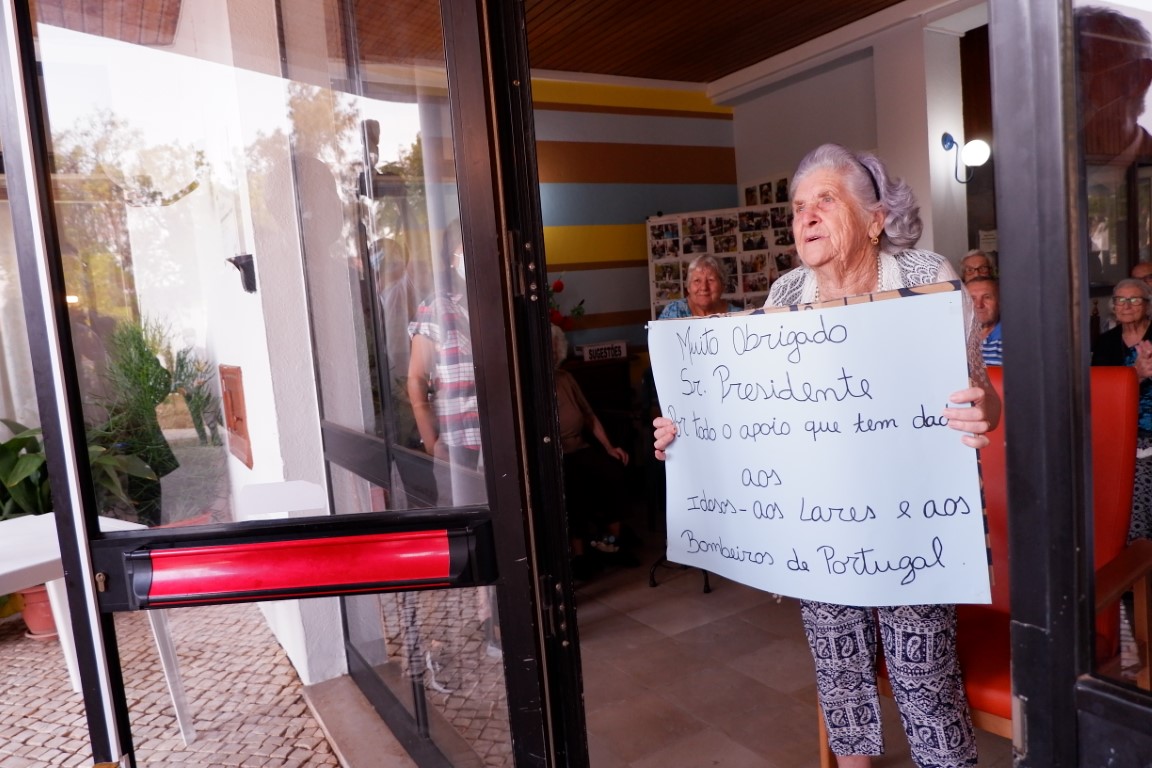 SUGESTÕES
Muito Obrigado
Sr. Presidente
Por todo o apoio que tem dado
aos
Idosos - aos Lares e aos
Bombeiros de Portugal.